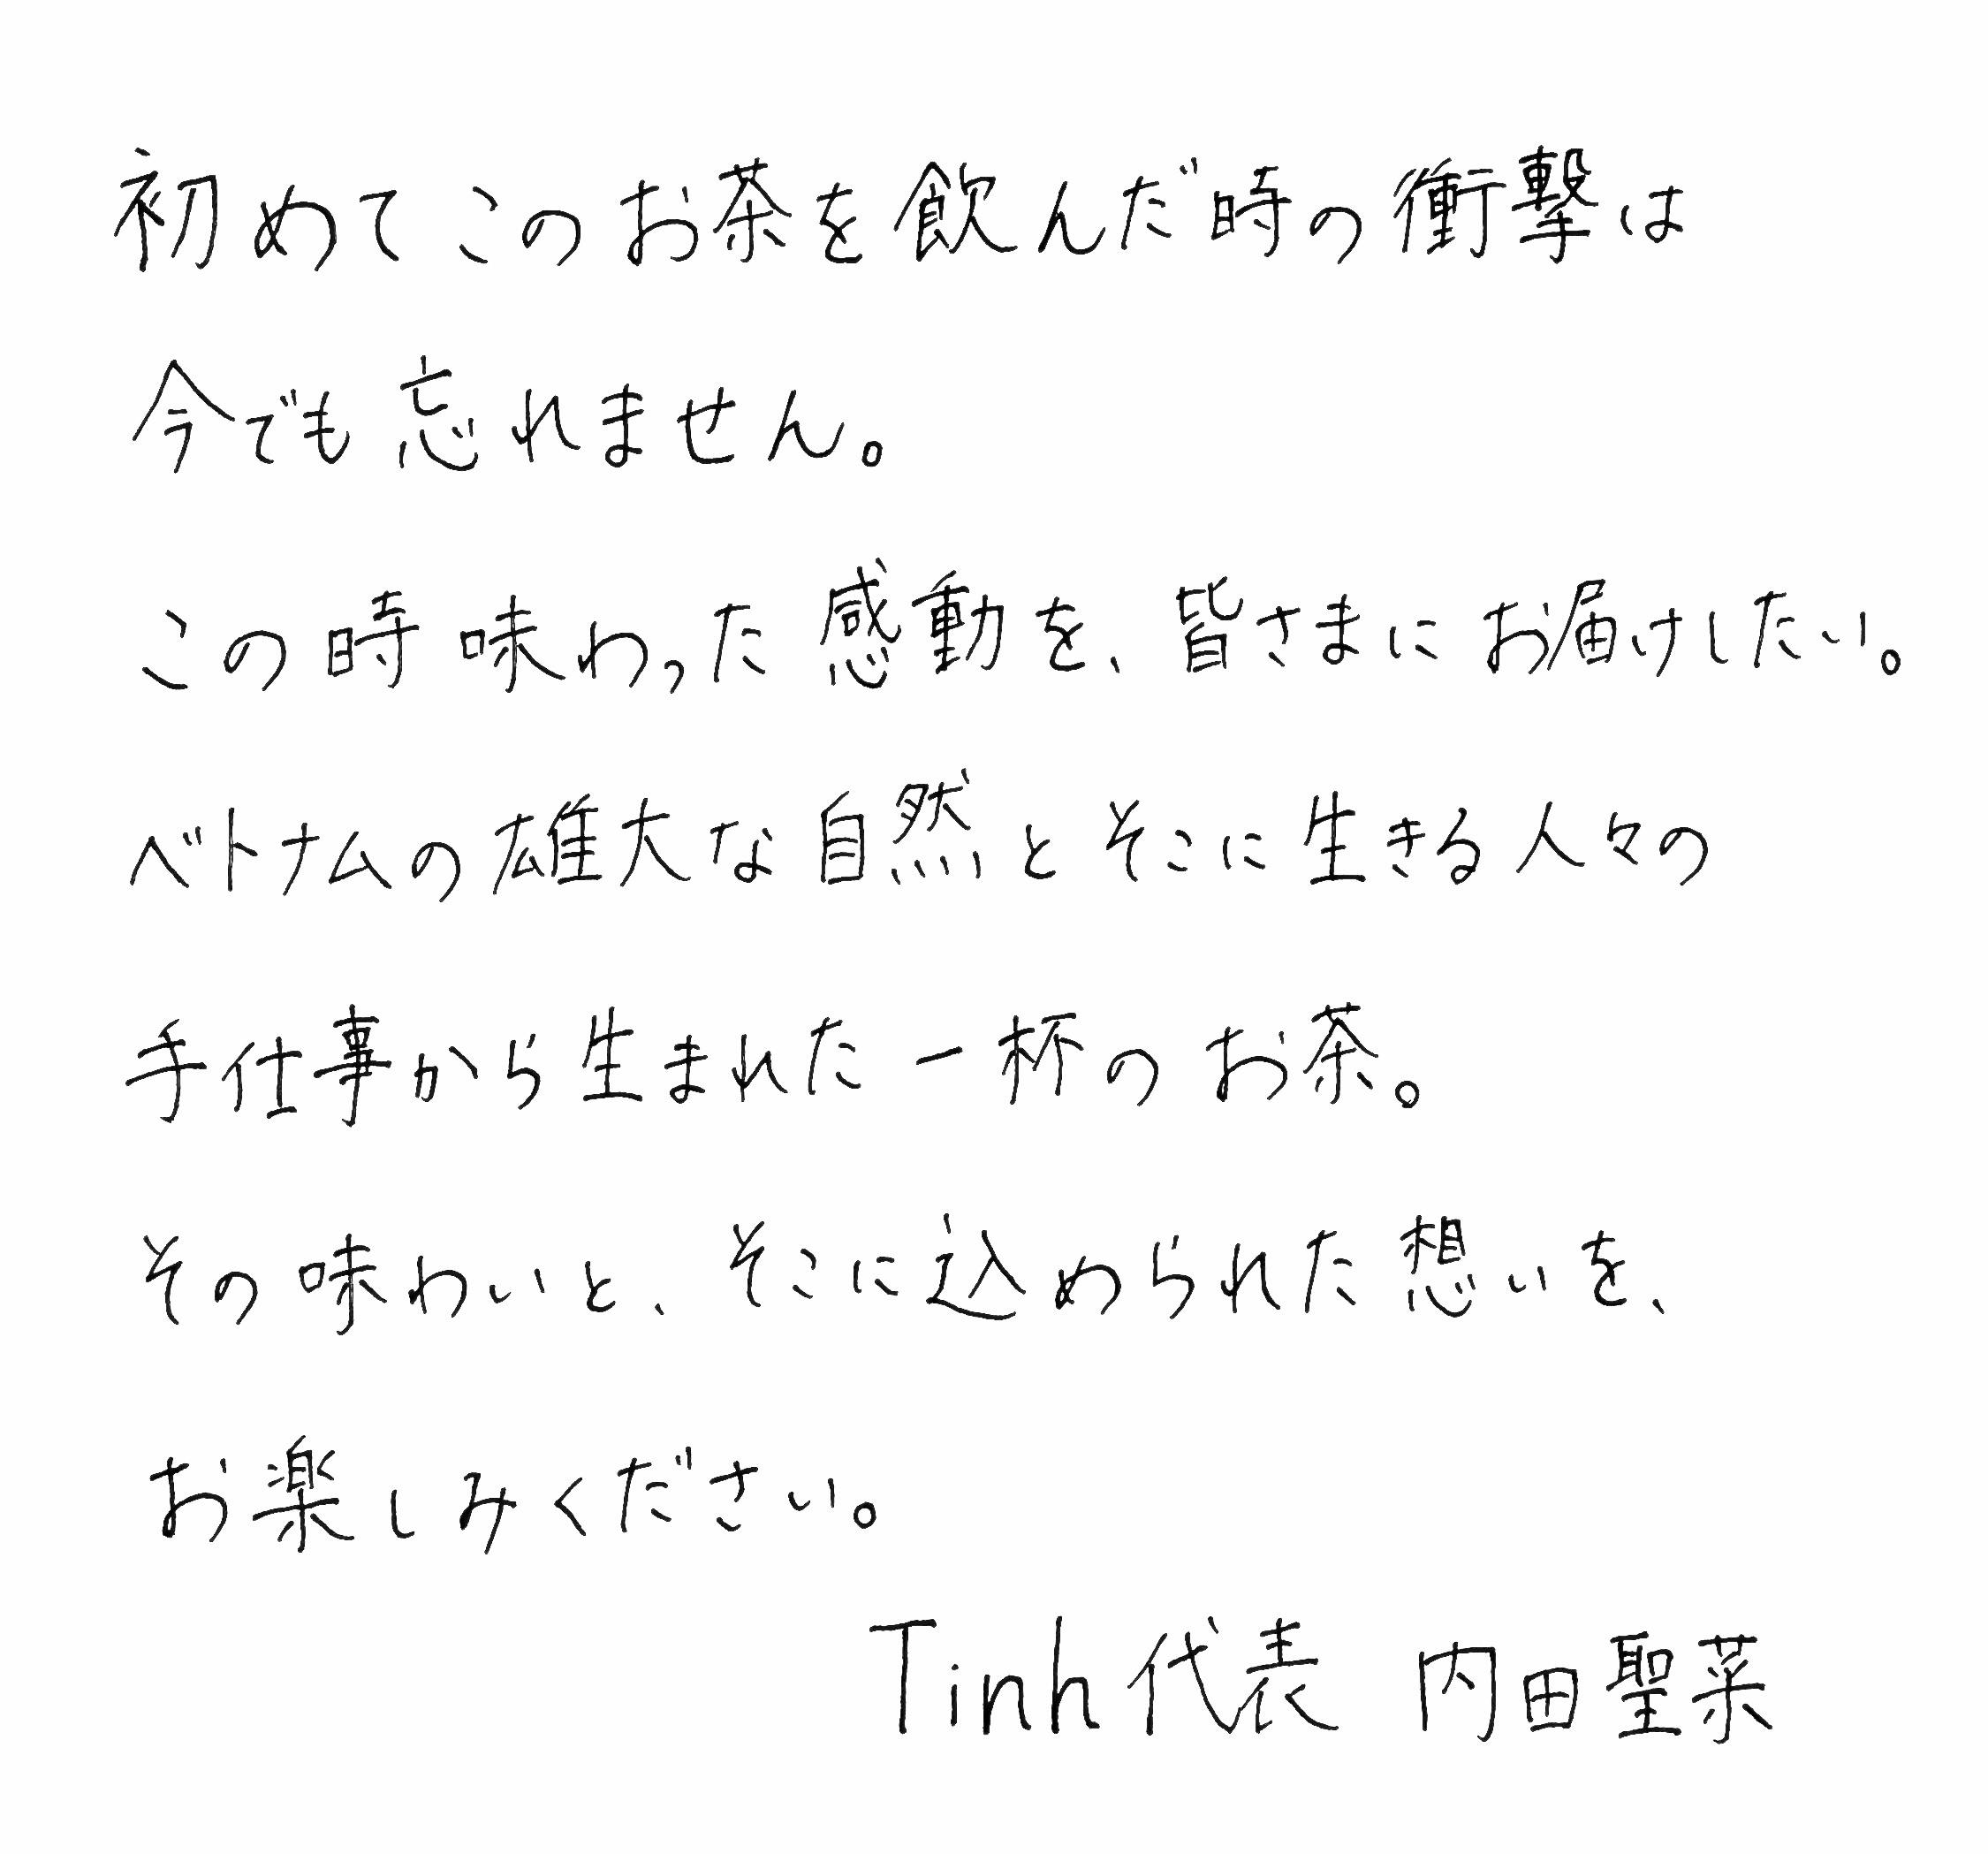 初めてこのお茶を飲んだ時の衝撃は
今でも忘れません。
この時味わった感動を、皆さまにお届けしたい。
ベトナムの雄大な自然とそこに生きる人々の
手仕事から生まれた一杯のお茶。
その味わいと、そこに込められた想いを、
お楽しみください。
Tinh代表 内田聖菜